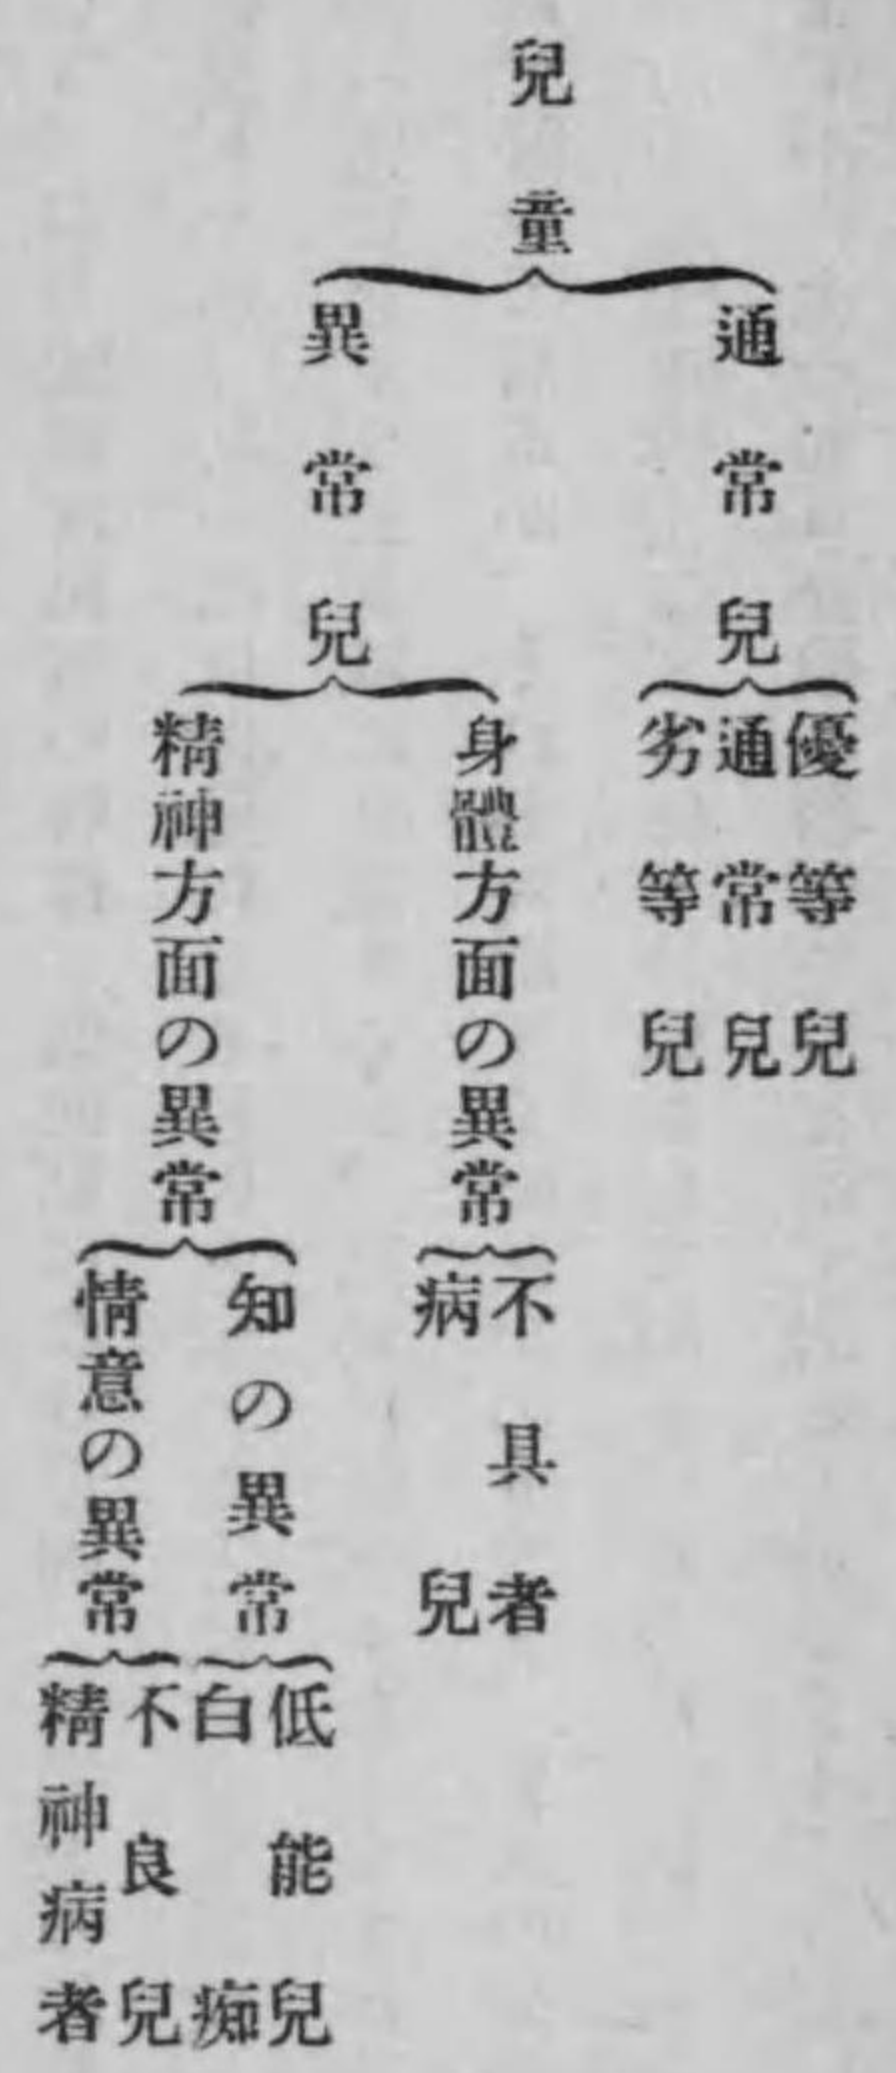 兒童
通常兒
優等兒
通常兒
劣等兒
異常兒
身體方面の異常
不具者
病兒
精神方面の異常
知の異常
低能兒
白痴
情意の異常
不良兒
精神病者